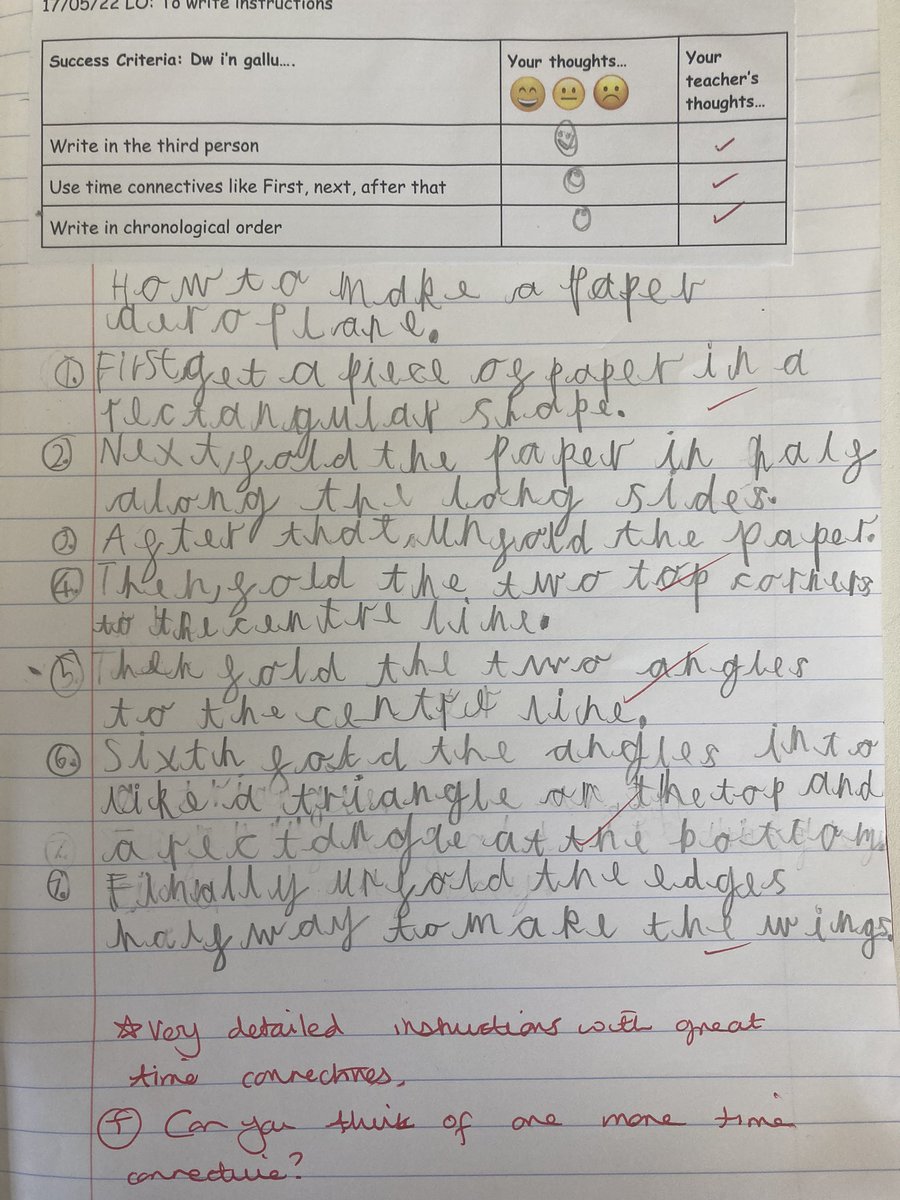 17/05/22 LO: To write instructions
Success Criteria: Dw i'n gallu....
Your thoughts...
Your teacher's thoughts...
Write in the third person
Use time connectives like First, next, after that
Write in chronological order
How to make a paper
aeroplane.
1. First get a piece of paper in a
rectangular shape.
2. Next, fold the paper in half
along the long sides.
3. After that, unfold the paper.
4. Then, fold the two top corners
to the centre line.
5. Then fold the two angles
to the centre line.
6. Sixth fold the angles into
like a triangle on the top and
a rectangle at the bottom.
7. Finally unfold the edges
halfway to make the wings.
☆ Very detailed instructions with great
time connectives.
T Can you think of one more time
connective?